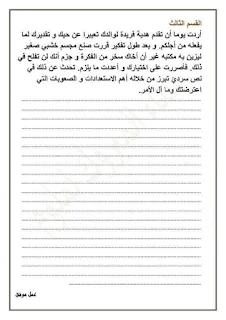 القسم الثالث
أردت يوما أن تقدم هدية فريدة لوالدك تعبيرا عن حبك و تقديرك لما
يفعله من أجلكم. و بعد طول تفكير قررت صنع مجسم خشبي صغير
ليزين به مكتبه غير أن أخاك سخر من الفكرة و جزم أنك لن تفلح في
ذلك. فأصررت على اختيارك و أعددت ما يلزم. تحدث عن ذلك في
نص سردي تبرز من خلاله أهم الاستعدادات و الصعوبات التي
اعترضتك وما آل الأمر.
عمل موفق